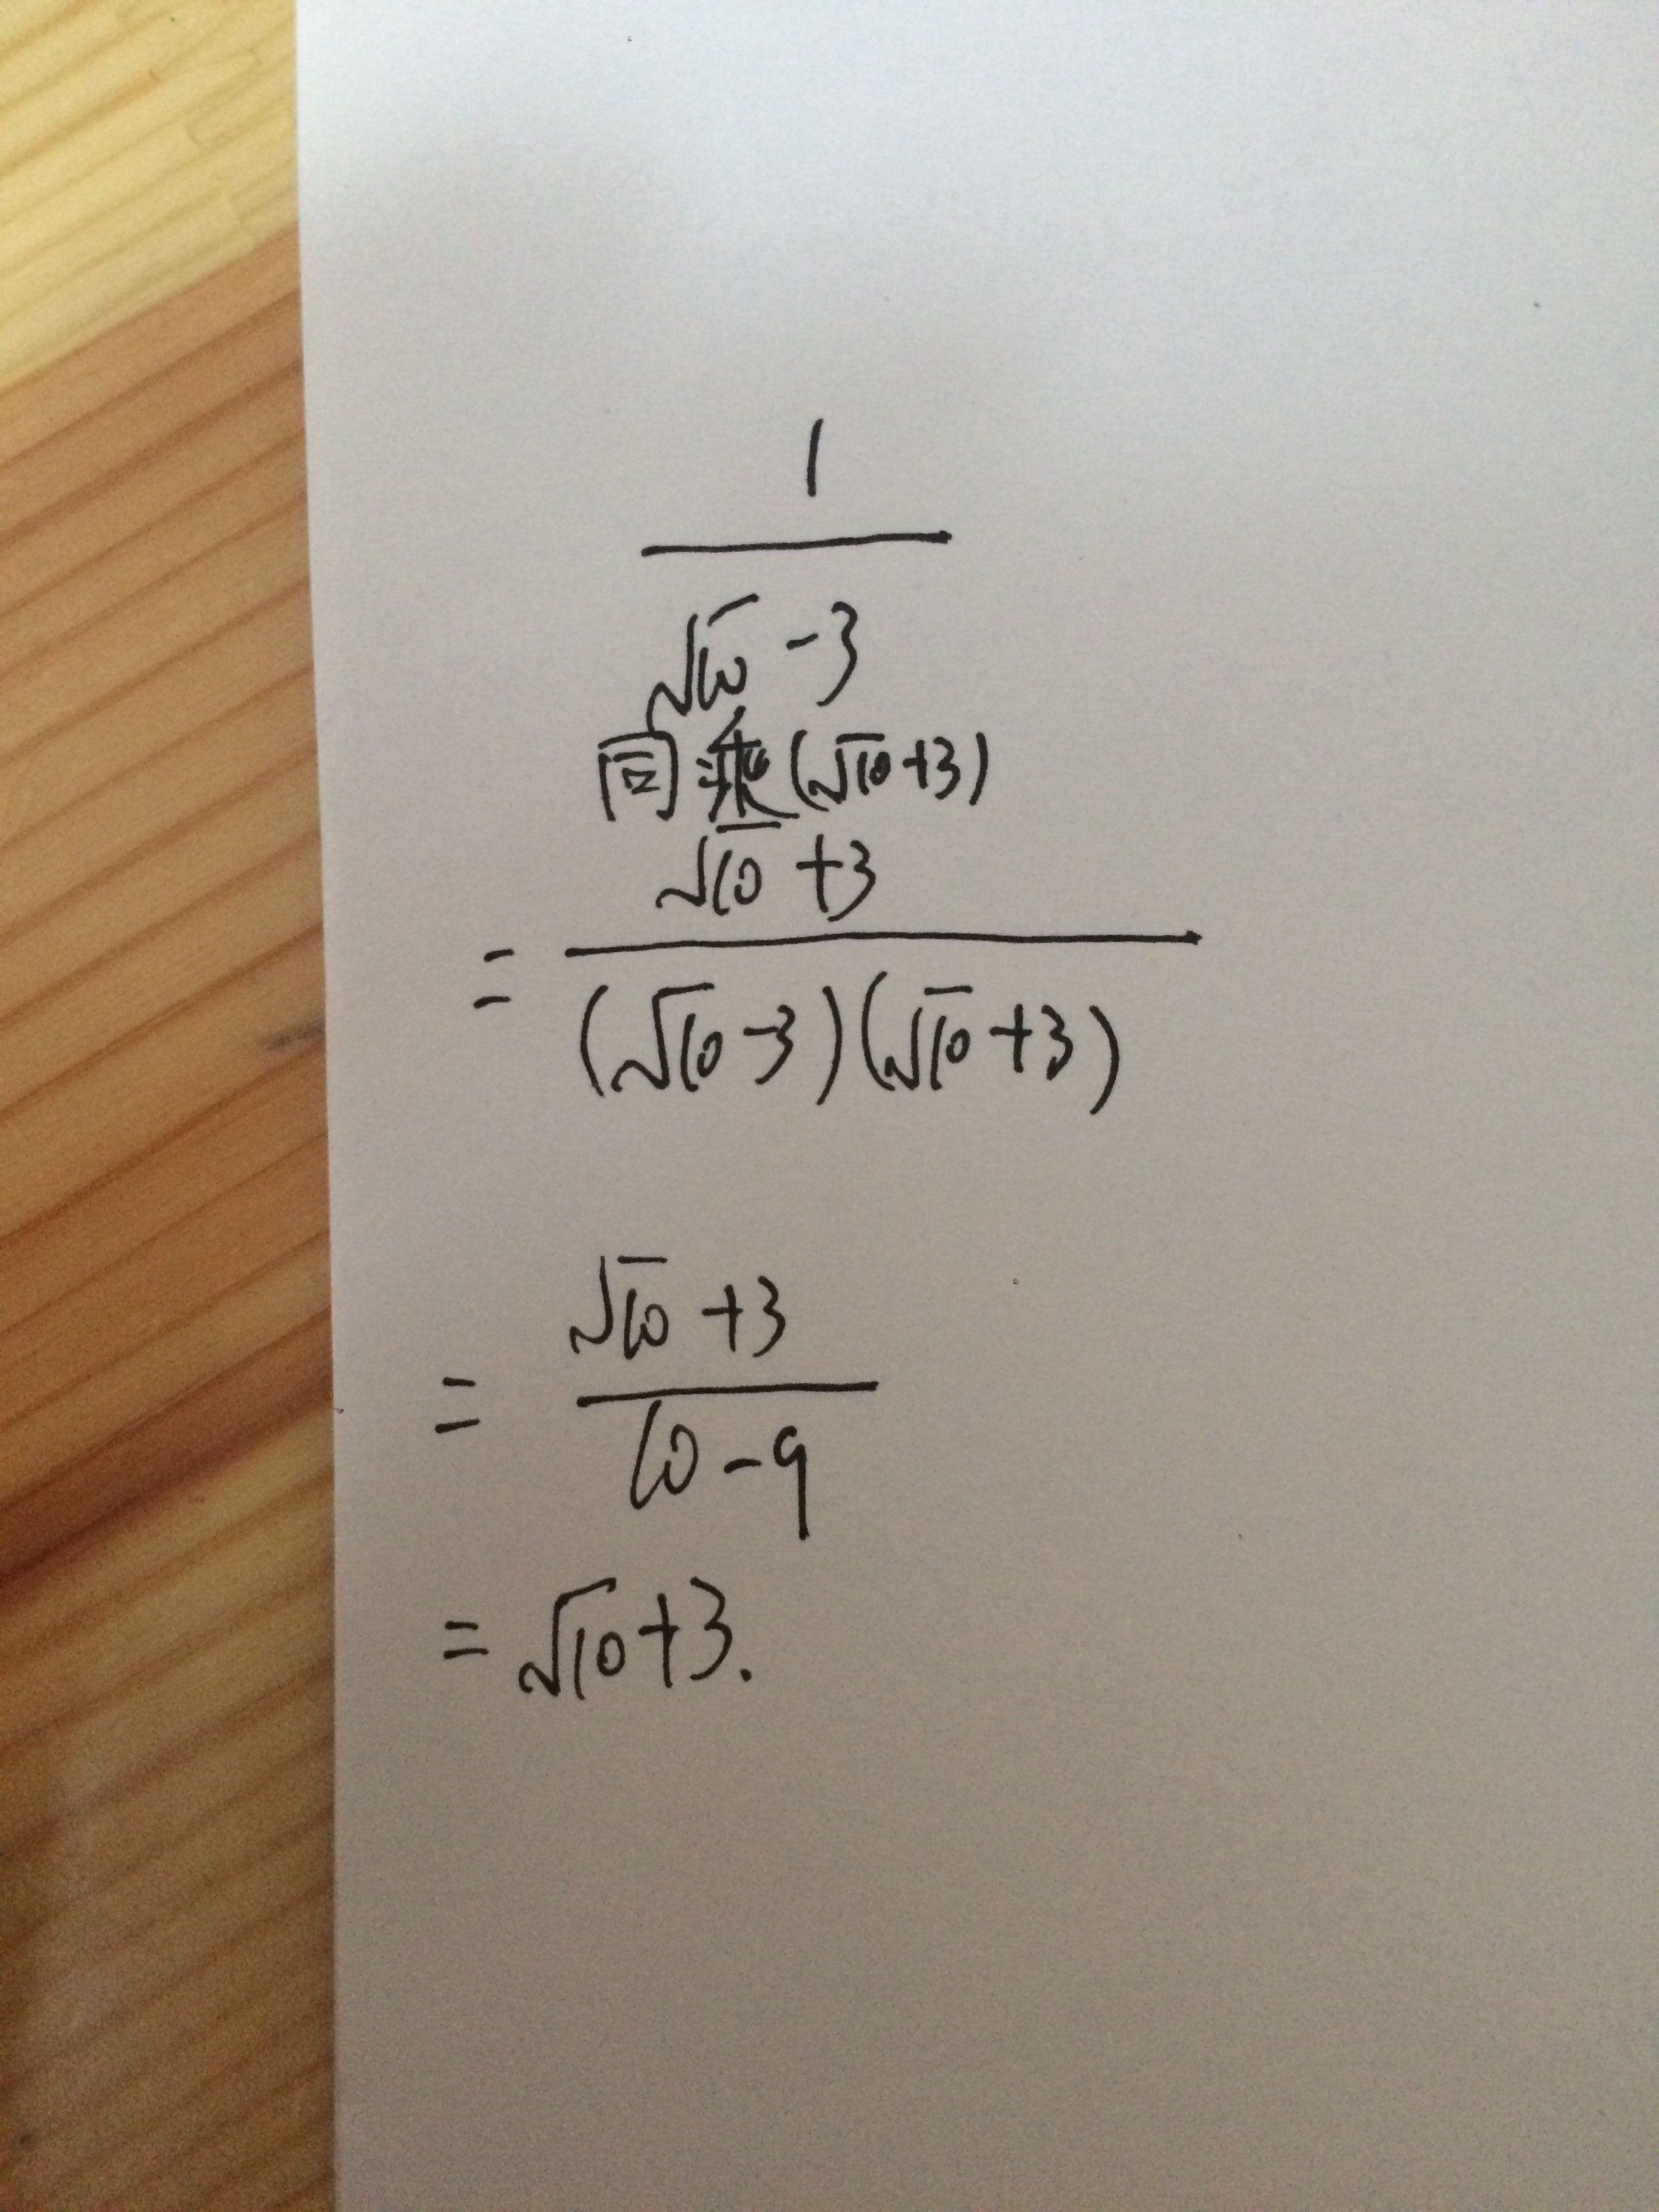 1
√10 -3
同乘(√10+3)
√10 +3
=
(√10-3)(√10+3)
√10 +3
=
10-9
=√10+3.